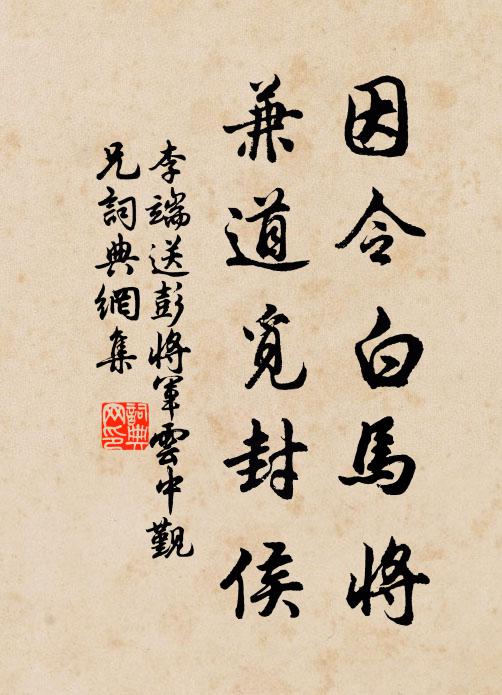 因令白馬將
兼道覓封侯
李端送彭將軍雲中覲
兄詞典網集
詞典
网印